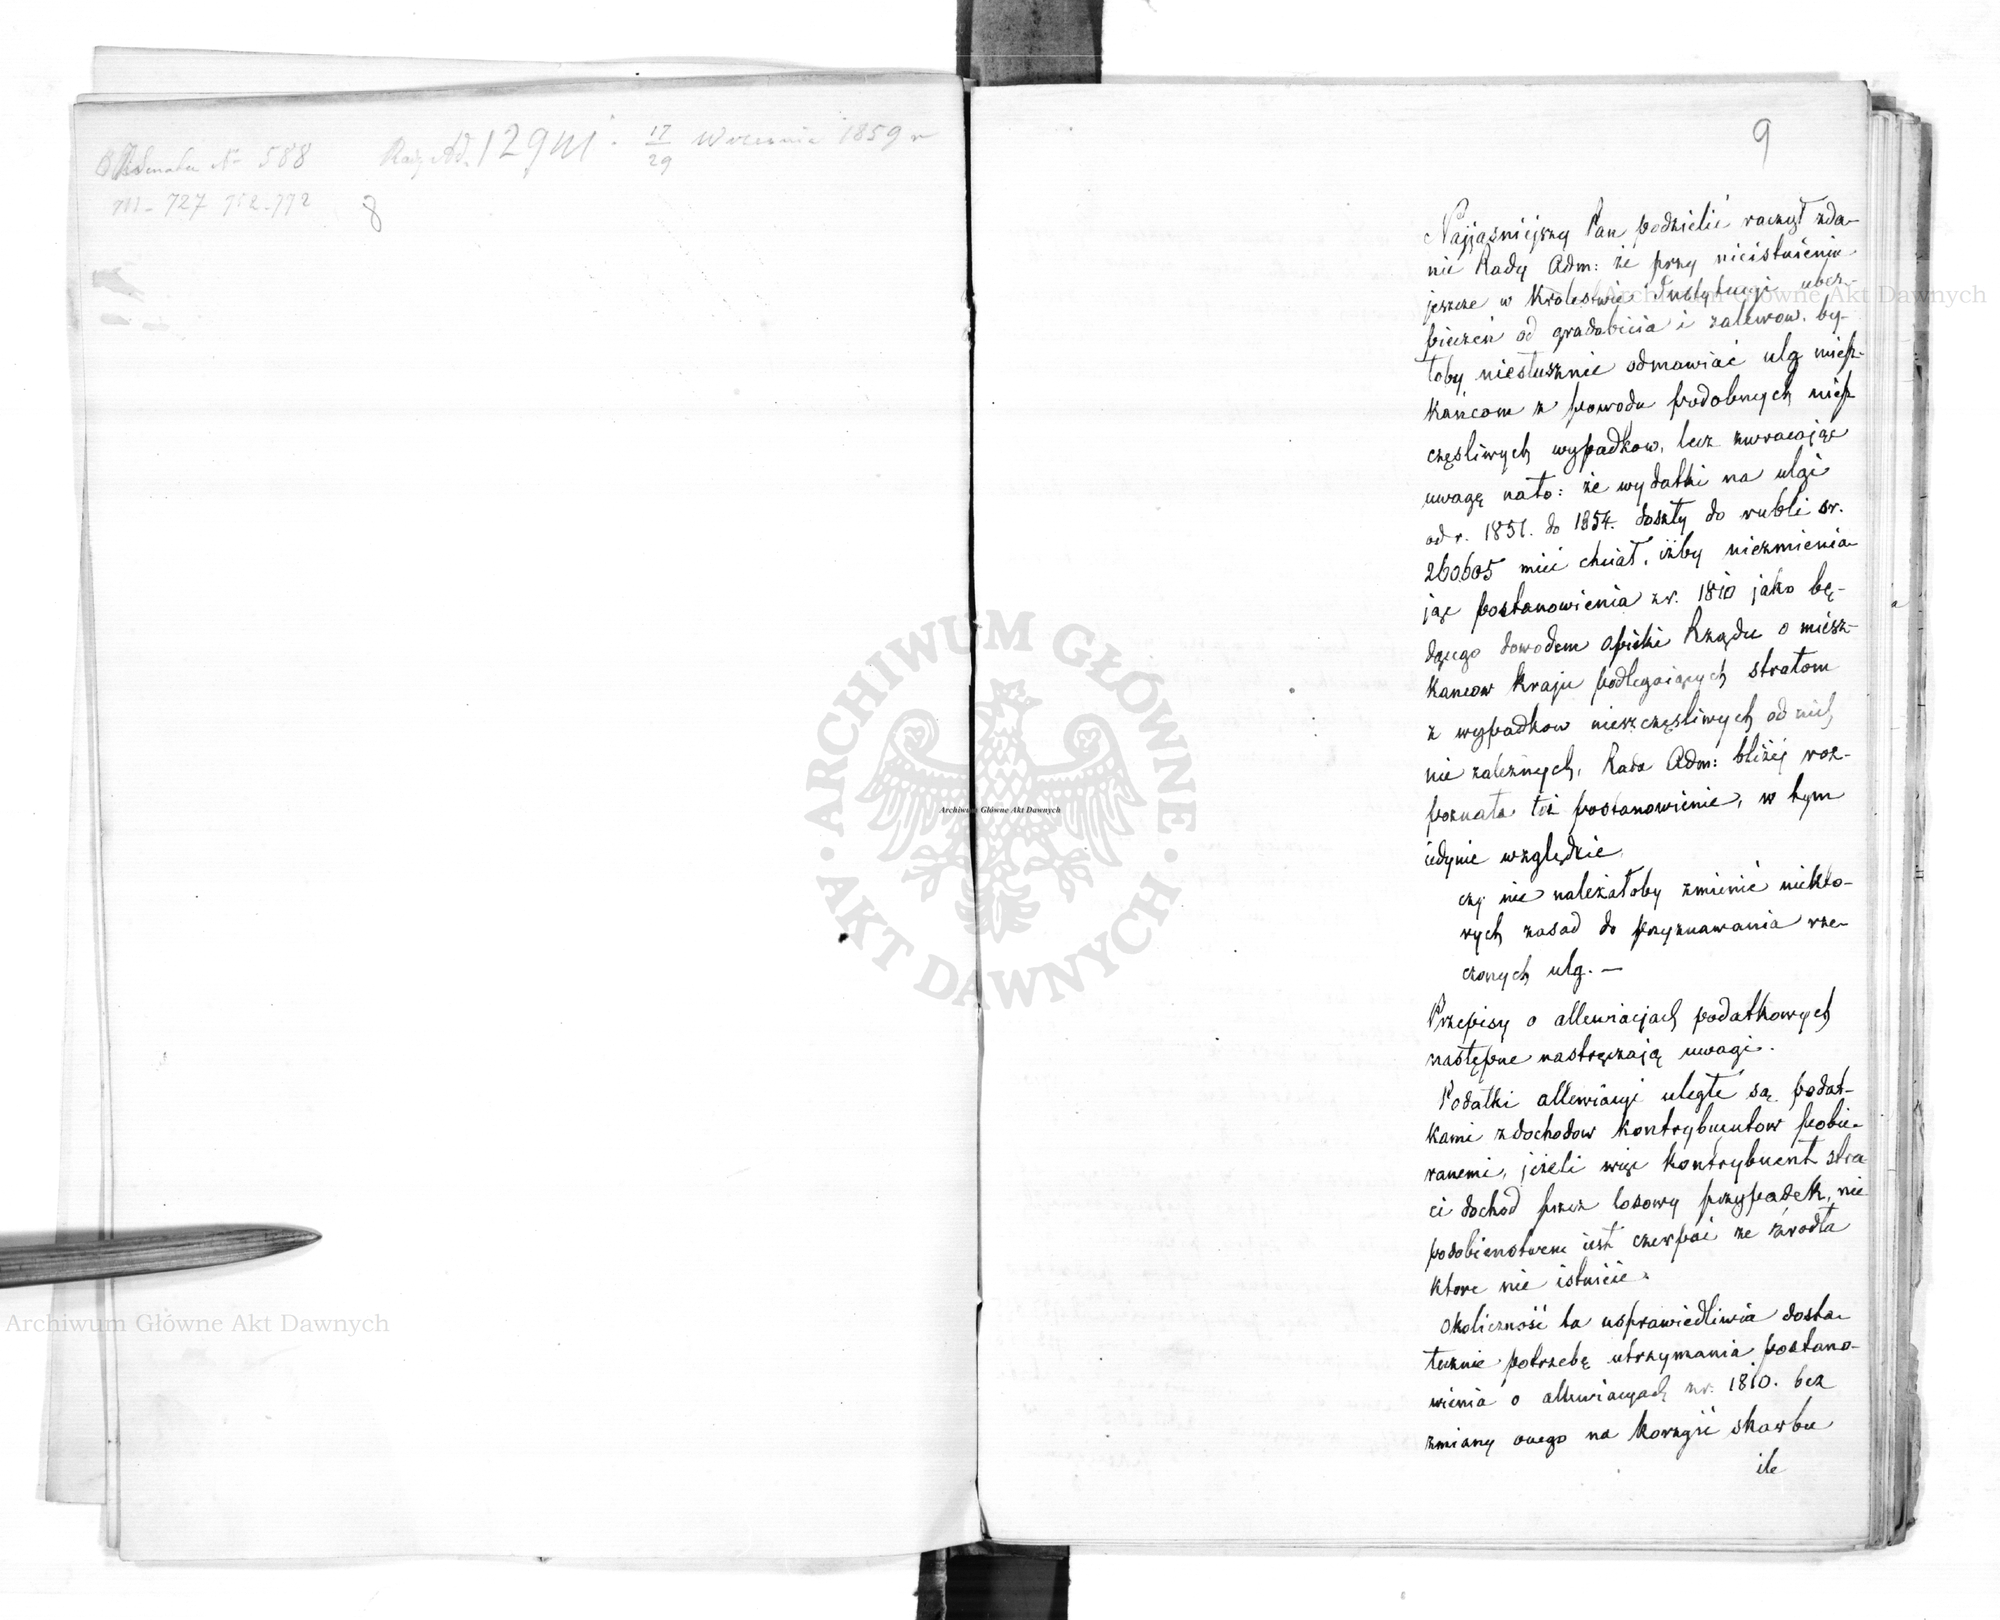 № 588
727 752-772
8
Rady Ad. 12911 17/29 Września 1859 r
9
Najjaśniejszy Pan podzielić raczył zda-
nie Rady Adm: że przy nieistnieniu
jeszcze w Krolestwie Instytucyi ubez-
pieczeń od gradobicia i zalewow, by-
łoby niesłusznie odmawiać ulg miesz-
kańcom z powodu podobnych niesz
częsliwych wypadkow, lecz zwracając
uwagę nato: że wydatki na ulgi
od r. 1851. do 1854. doszły do rubli sr.
260605 mieć chciał, iżby niezmienia-
jąc postanowienia z r. 1810 jako bę-
dącego dowodem opieki Rządu o miesz-
kancow kraju podlegaiących stratom
z wypadkow nieszczęsliwych od nich
nie zależnych, Rada Adm: bliżéj roz-
poznała toż postanowienie, w tym
iedynie względzie
czy nie należałoby zmienić niekto-
rych zasad do przyznawania rze-
czonych ulg. —
Przepisy o allewiacjach podatkowych
następne nastręczają uwagi.
Podatki allewiacyi uległe są podat-
kami z dochodow kontrybuentow pobie-
ranemi, jeżeli więc kontrybuent stra-
ci dochod przez losowy przypadek, nie
podobienstwem iest czerpać ze źrodła
ktore nie istnieie.
Okoliczność ta usprawiedliwia dosta-
tecznie potrzebę utrzymania postano-
wienia o allewiacyach z r. 1810. bez
zmiany onego na korzyść skarbu
ile
Archiwum Główne Akt Dawnych
Archiwum Główne Akt Dawnych
Archiwum Główne Akt Dawnych
ARCHIWUM GŁÓWNE
AKT DAWNYCH